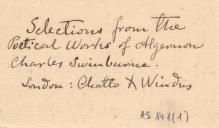 Selections from the
Poetical Works of Algernon
Charles Swinburne.
London: Chatto & Windus
AS 141(1)